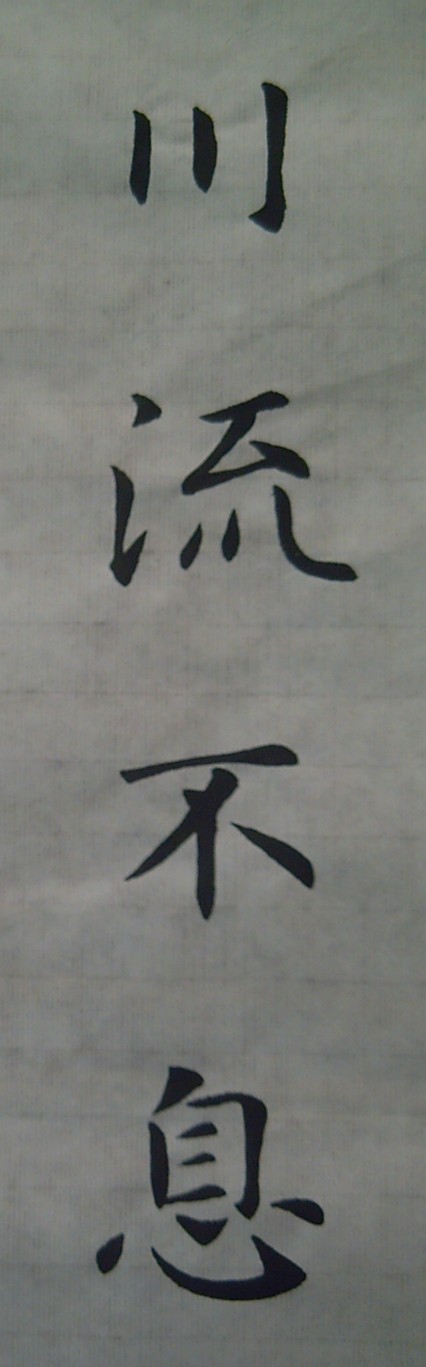 川流不息